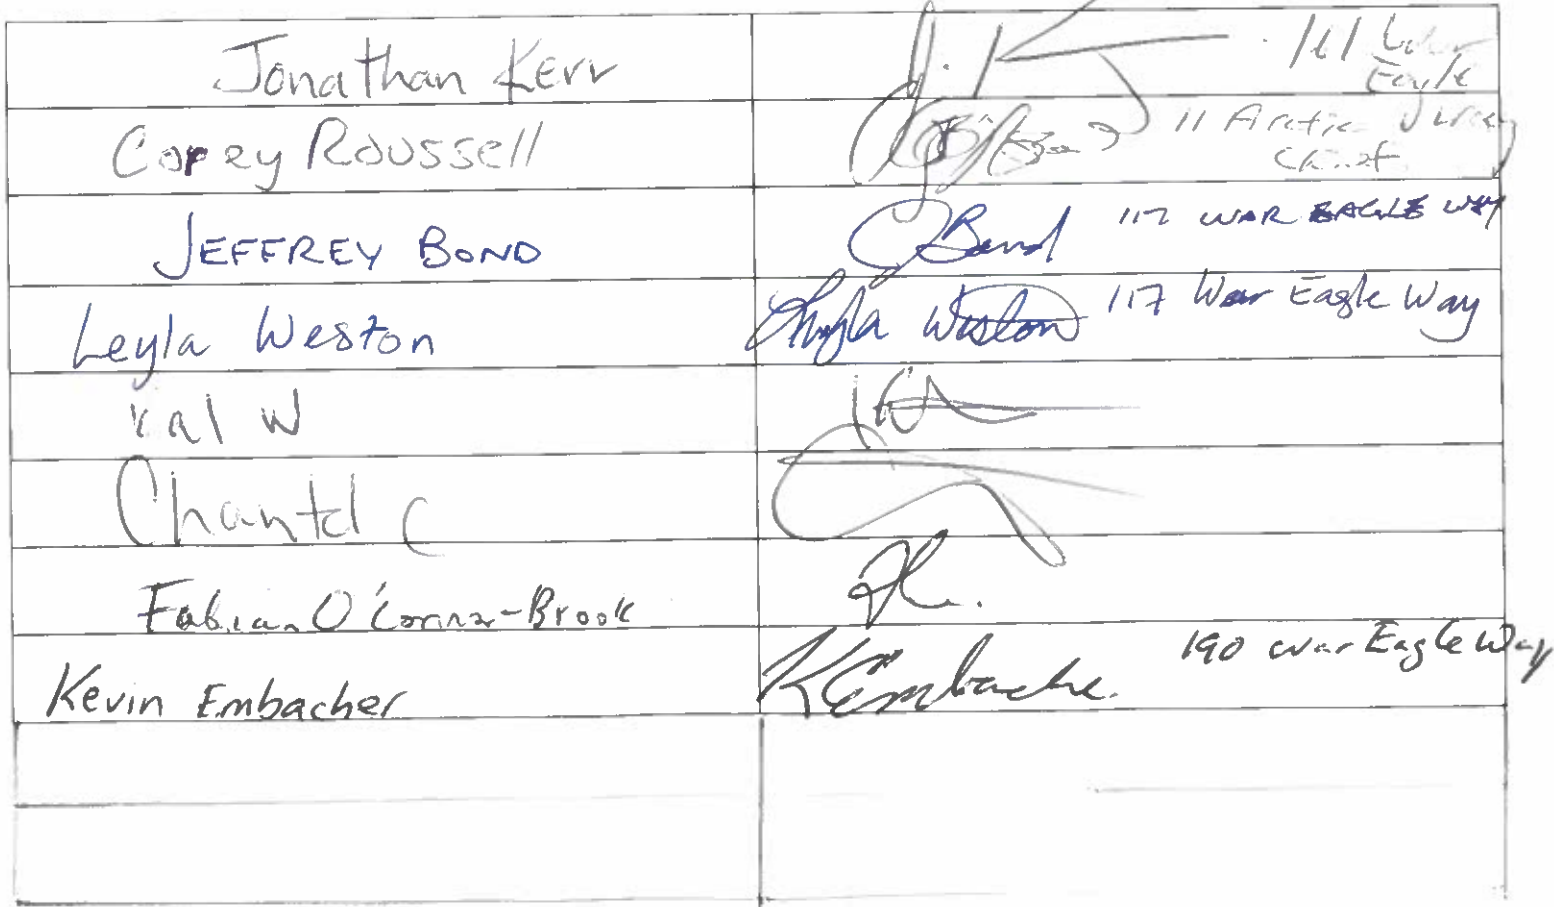 Jonathan Kerr J.K 161 War
Eagle
Way
Corey Roussell 11 Arctic
JEFFREY BOND JBond 117 WAR EAGLE WAY
Leyla Weston Leyla Weston 117 War Eagle Way
Kal W
Chantel C
Fabian O'Connor-Brook
Kevin Embacher KEmbacher 190 War Eagle Way